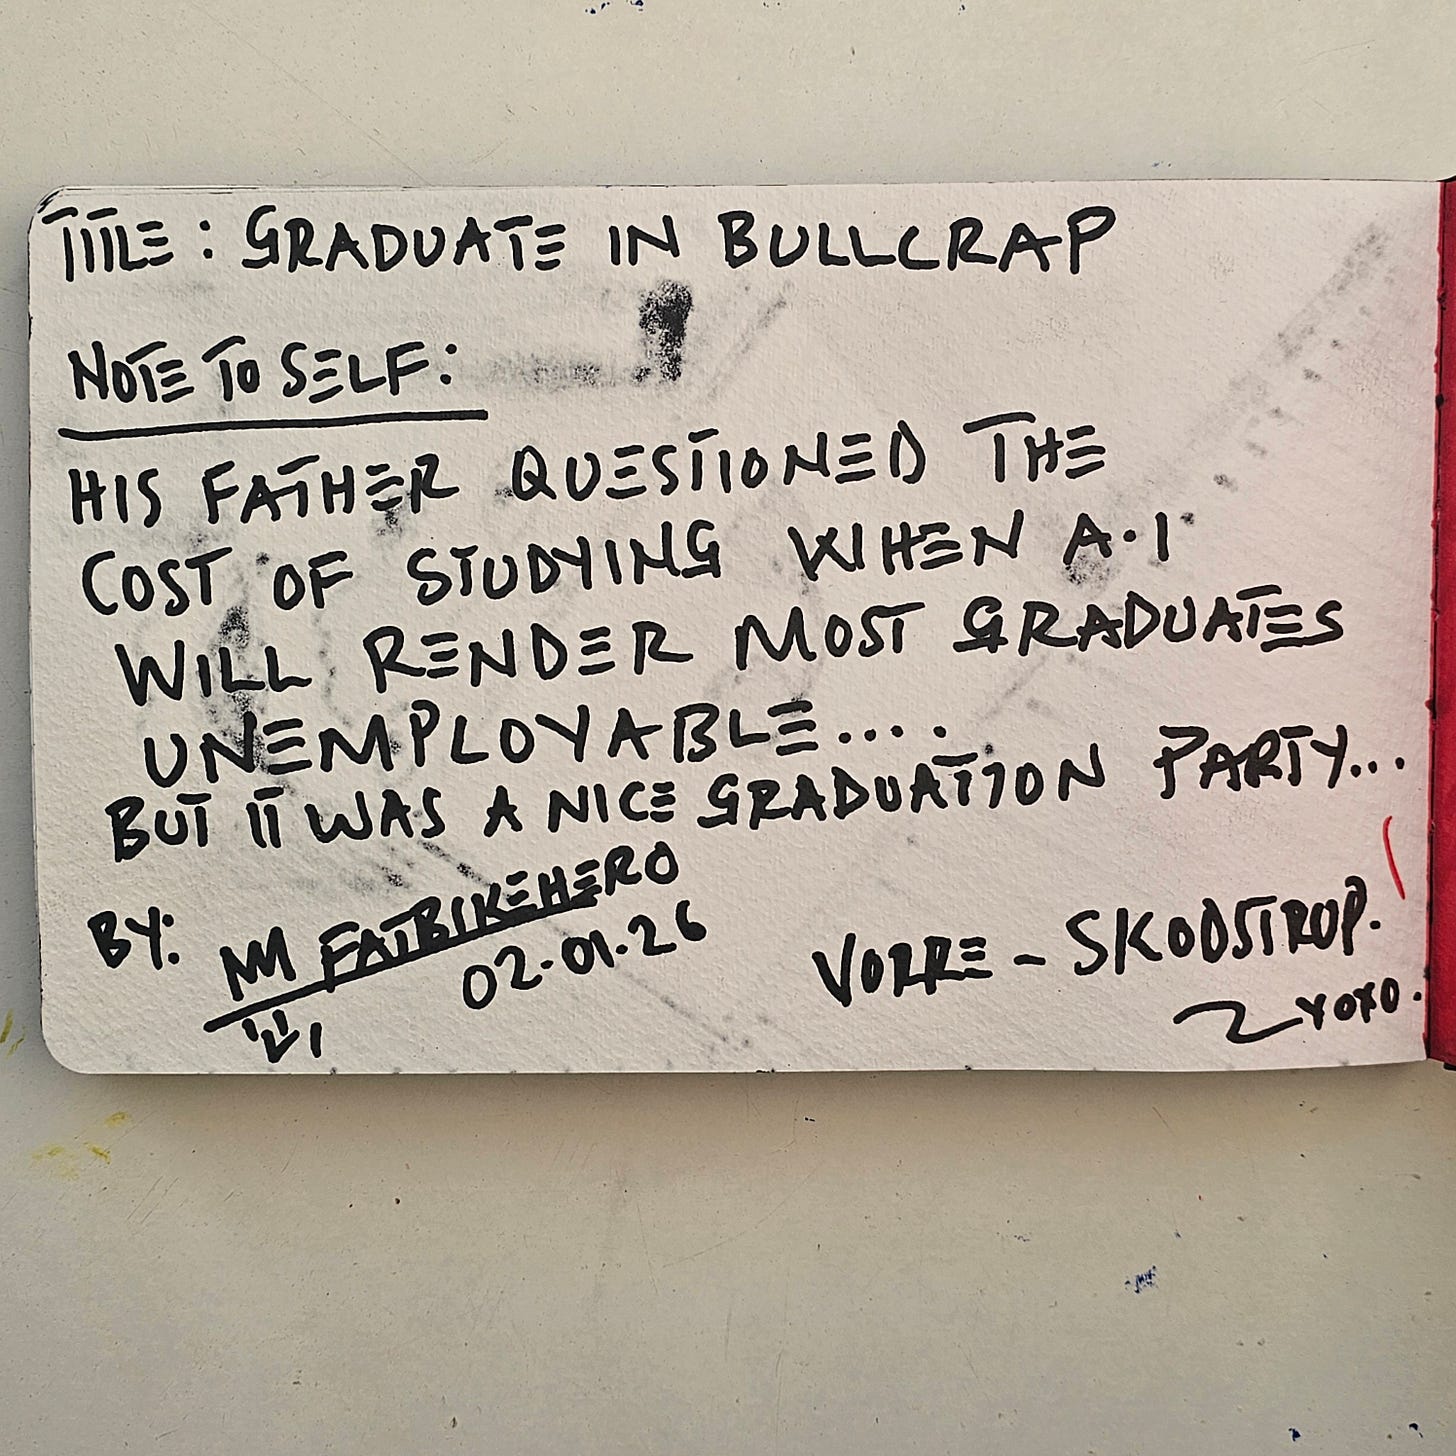 TITLE: GRADUATE IN BULLCRAP
NOTE TO SELF:
HIS FATHER QUESTIONED THE
COST OF STUDYING WHEN A.I
WILL RENDER MOST GRADUATES
UNEMPLOYABLE....
BUT IT WAS A NICE GRADUATION PARTY...
BY: FATBIKEHERO
02.01.26
VORRE - SKODSTRUP.
XOXO.